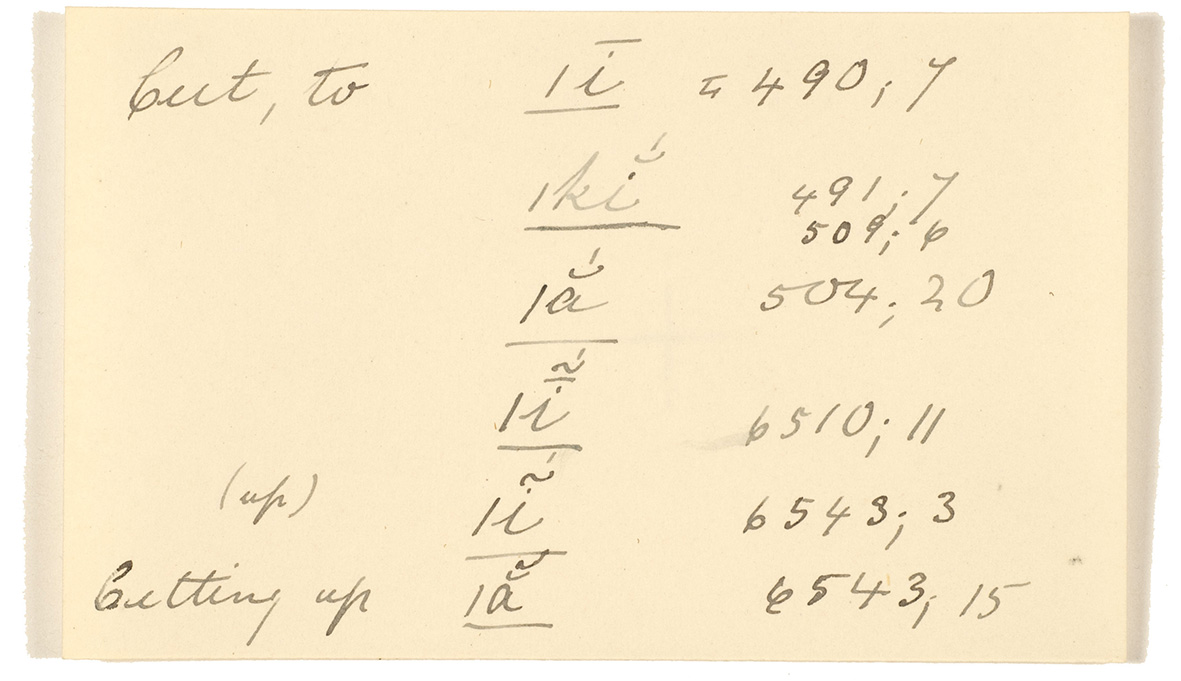 Cut, to ǀī = 490; 7
ǀkĭ́ 491; 7
509; 6
ǀắ 504; 20
ǀī̃́ 6510; 11
(up) ǀĩ́ 6543; 3
Cutting up ǀã̆ 6543; 15